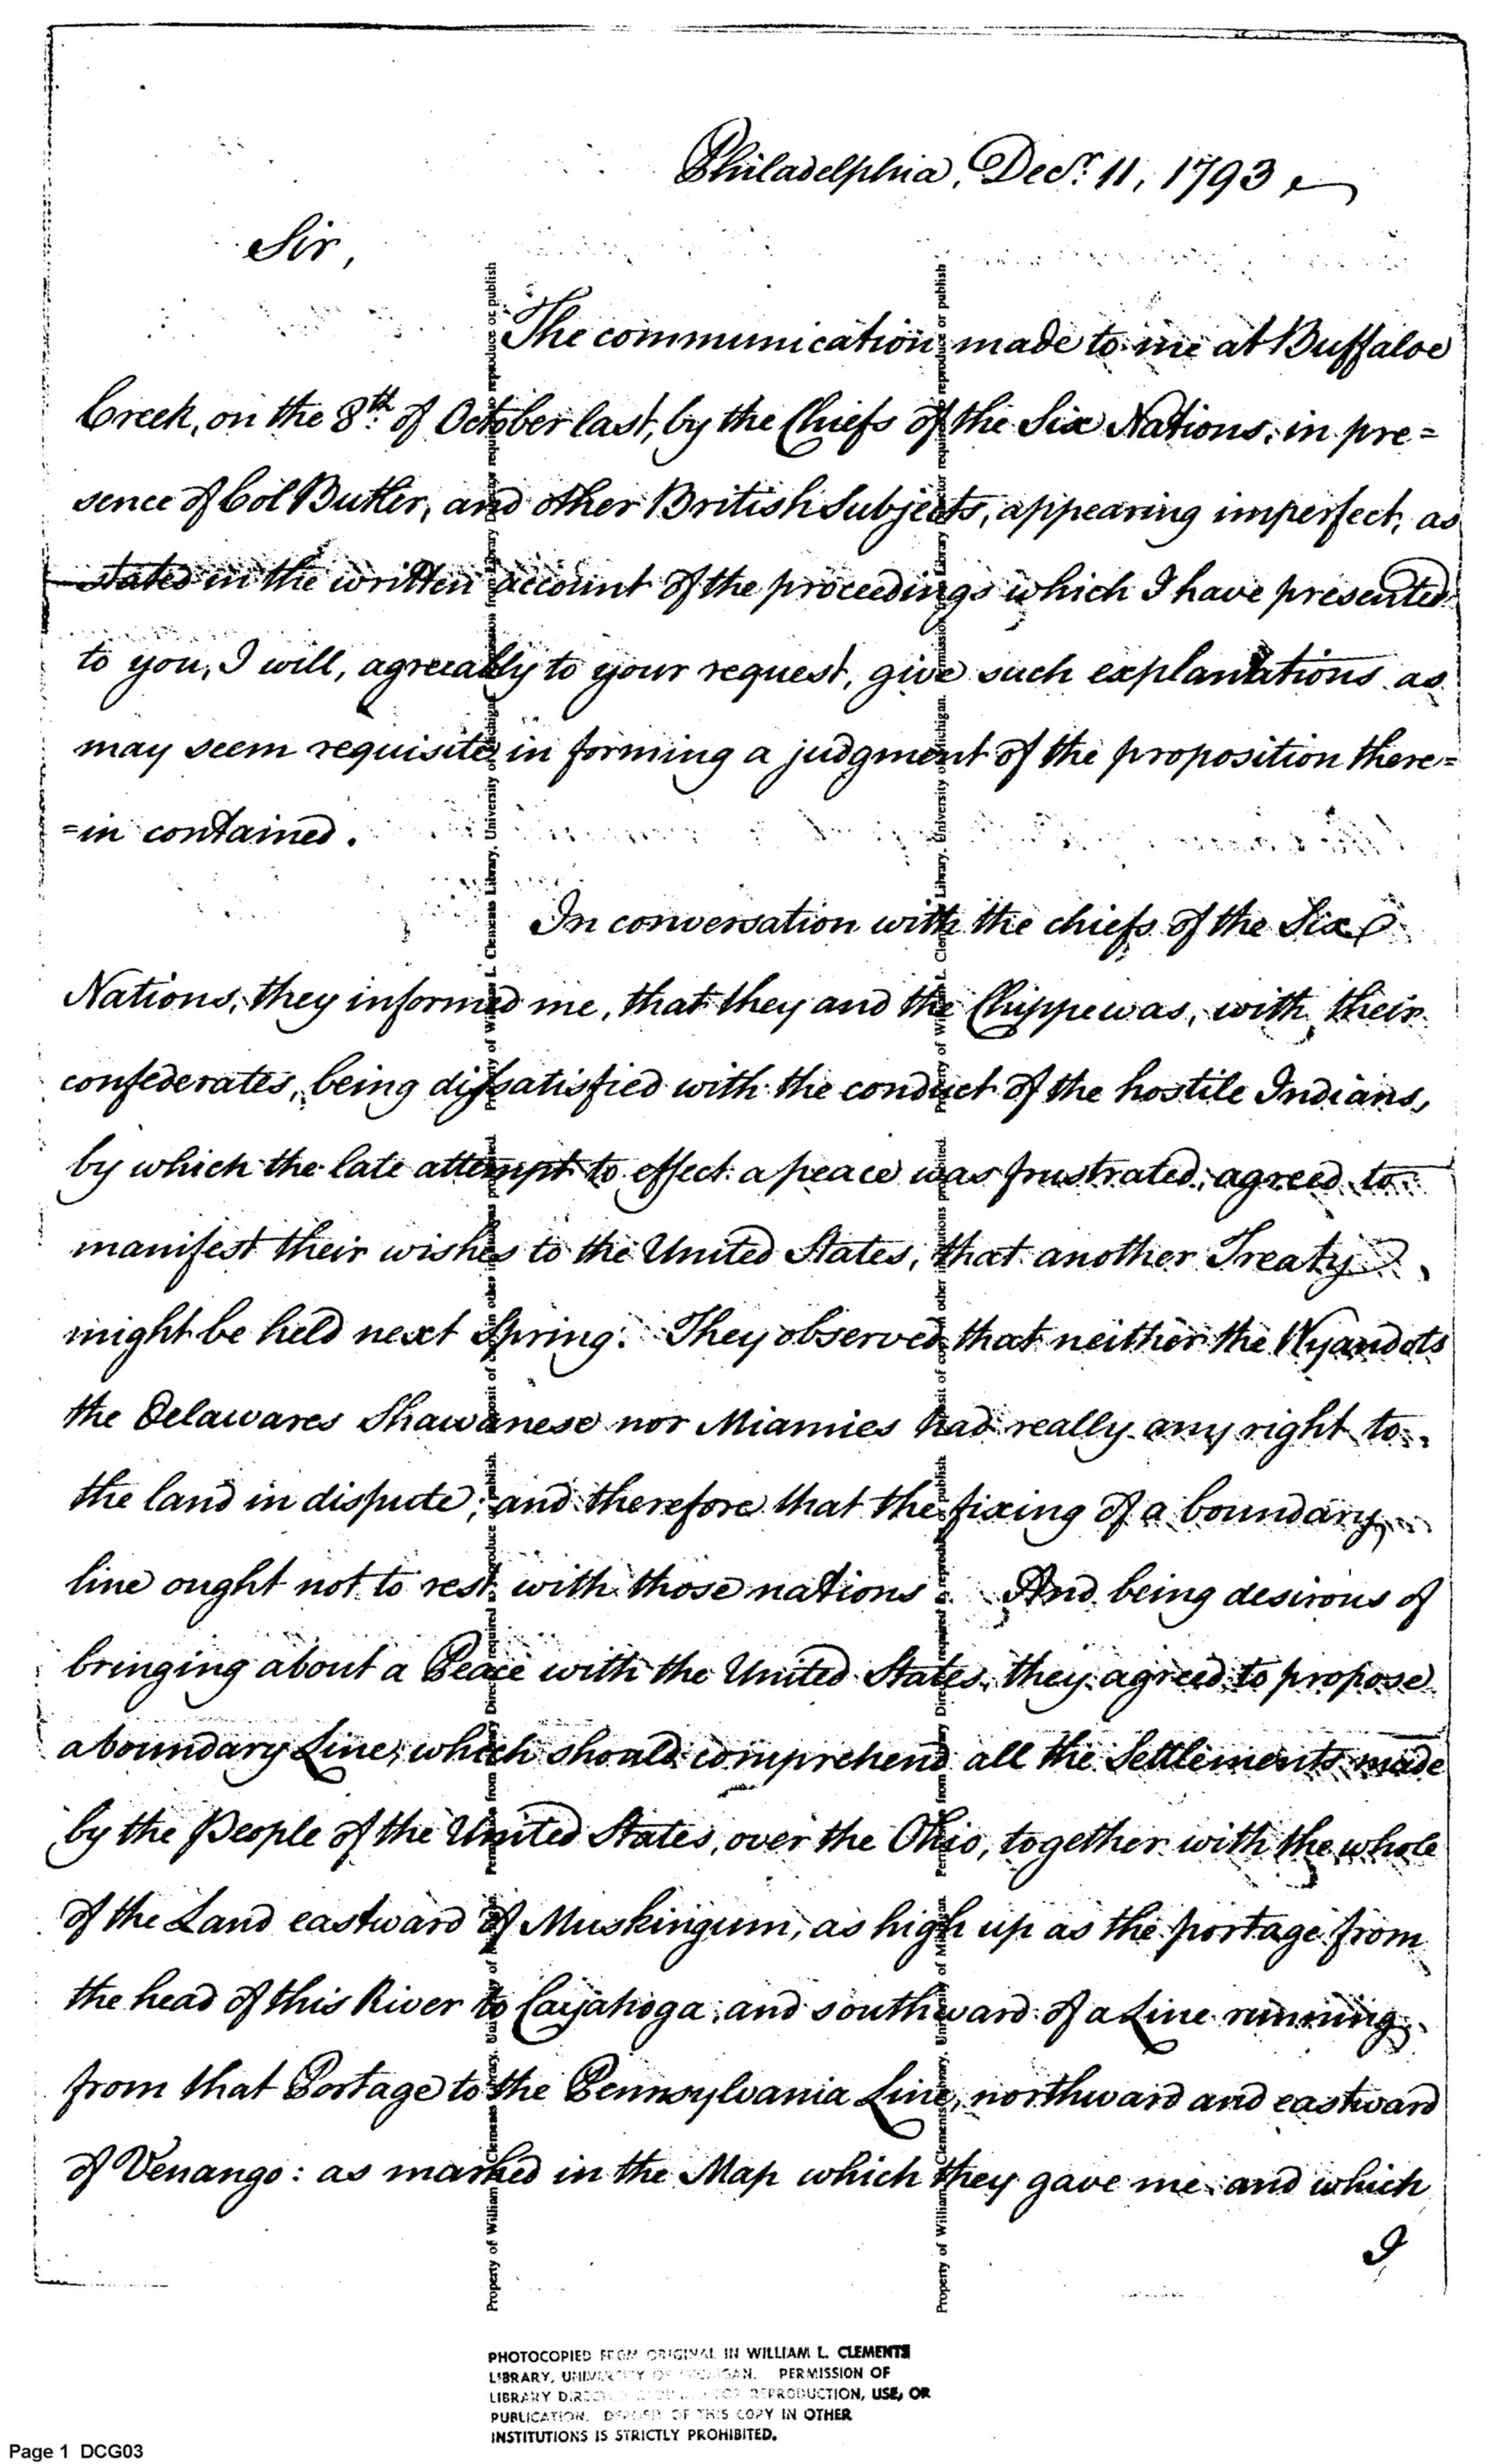 Philadelphia, Decr. 11, 1793
Sir,
The communication made to me at Buffaloe
Creek, on the 8th. of October last, by the Chiefs of the Six Nations, in pre=
sence of Col Butler, and other British Subjects, appearing imperfect, as
stated in the written account of the proceedings which I have presented
to you, I will, agreeably to your request, give such explanations as
may seem requisite in forming a judgment of the proposition there=
=in contained.
In conversation with the chiefs of the Six
Nations, they informed me, that they and the Chippewas, with their
confederates, being dissatisfied with the conduct of the hostile Indians,
by which the late attempt to effect a peace was frustrated, agreed to
manifest their wishes to the United States, that another Treaty
might be held next Spring. They observed that neither the Wyandots
the Delawares Shawanese nor Miamies had really any right to
the land in dispute; and therefore that the fixing of a boundary
line ought not to rest with those nations. And being desirous of
bringing about a Peace with the United States, they agreed to propose
a boundary Line, which should comprehend all the Settlements made
by the People of the United States, over the Ohio, together with the whole
of the Land eastward of Muskingum, as high up as the portage from
the head of this River to Cayahoga, and southward of a Line running
from that Portage to the Pennsylvania Line, northward and eastward
of Venango: as marked in the Map which they gave me and which
I
Property of William L. Clements Library, University of Michigan. Permission from Library Director required to reproduce or publish
Property of William L. Clements Library, University of Michigan. Permission from Library Director required to reproduce or publish
PHOTOCOPIED FROM ORIGINAL IN WILLIAM L. CLEMENTS
LIBRARY, UNIVERSITY OF MICHIGAN. PERMISSION OF
LIBRARY DIRECTOR REPRODUCTION, USE, OR
PUBLICATION. DEPOSIT OF THIS COPY IN OTHER
INSTITUTIONS IS STRICTLY PROHIBITED.
Page 1 DCG03